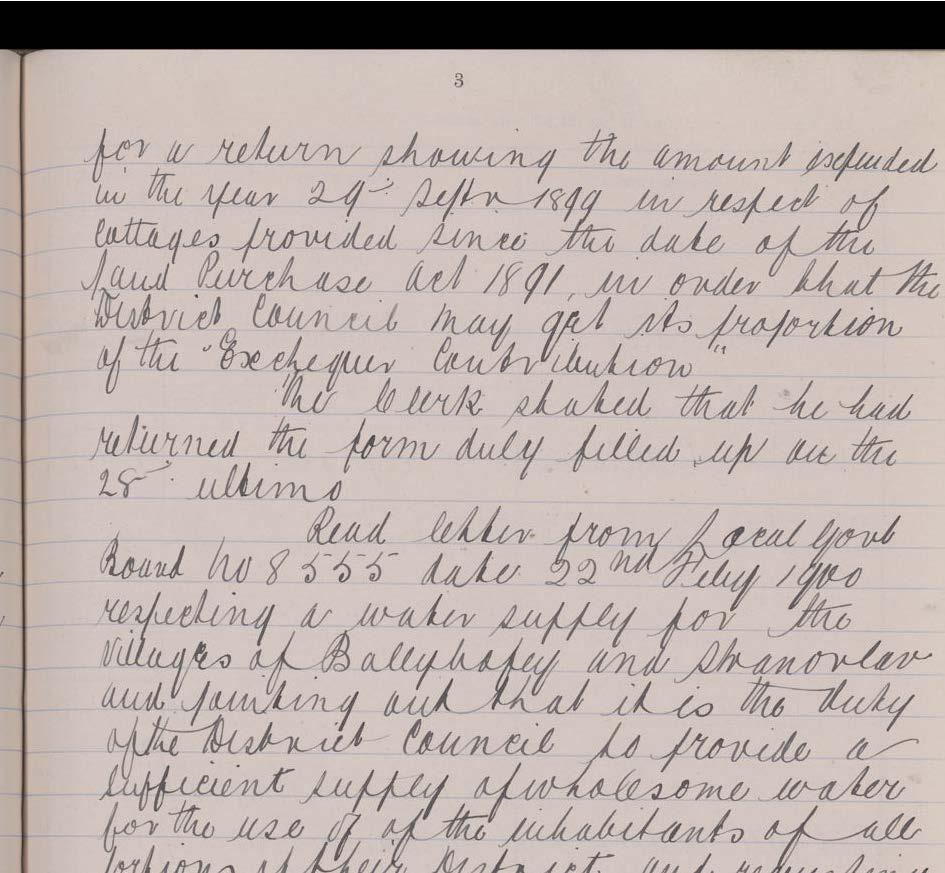 3
for a return showing the amount expended
in the year 29th Septr 1899 in respect of
Cottages provided since the date of the
Land Purchase Act 1891, in order that the
District Council may get its proportion
of the "Exchequer Contribution"
The Clerk stated that he had
returned the form duly filled up on the
28th ultimo
Read letter from Local Govt
Board No 8555 date 22nd Feby 1900
respecting a water supply for the
Villages of Ballybofey and Stranorlar
and pointing out that it is the duty
of the District Council to provide a
sufficient supply of wholesome water
for the use of of the inhabitants of all
portions of their District, and requesting